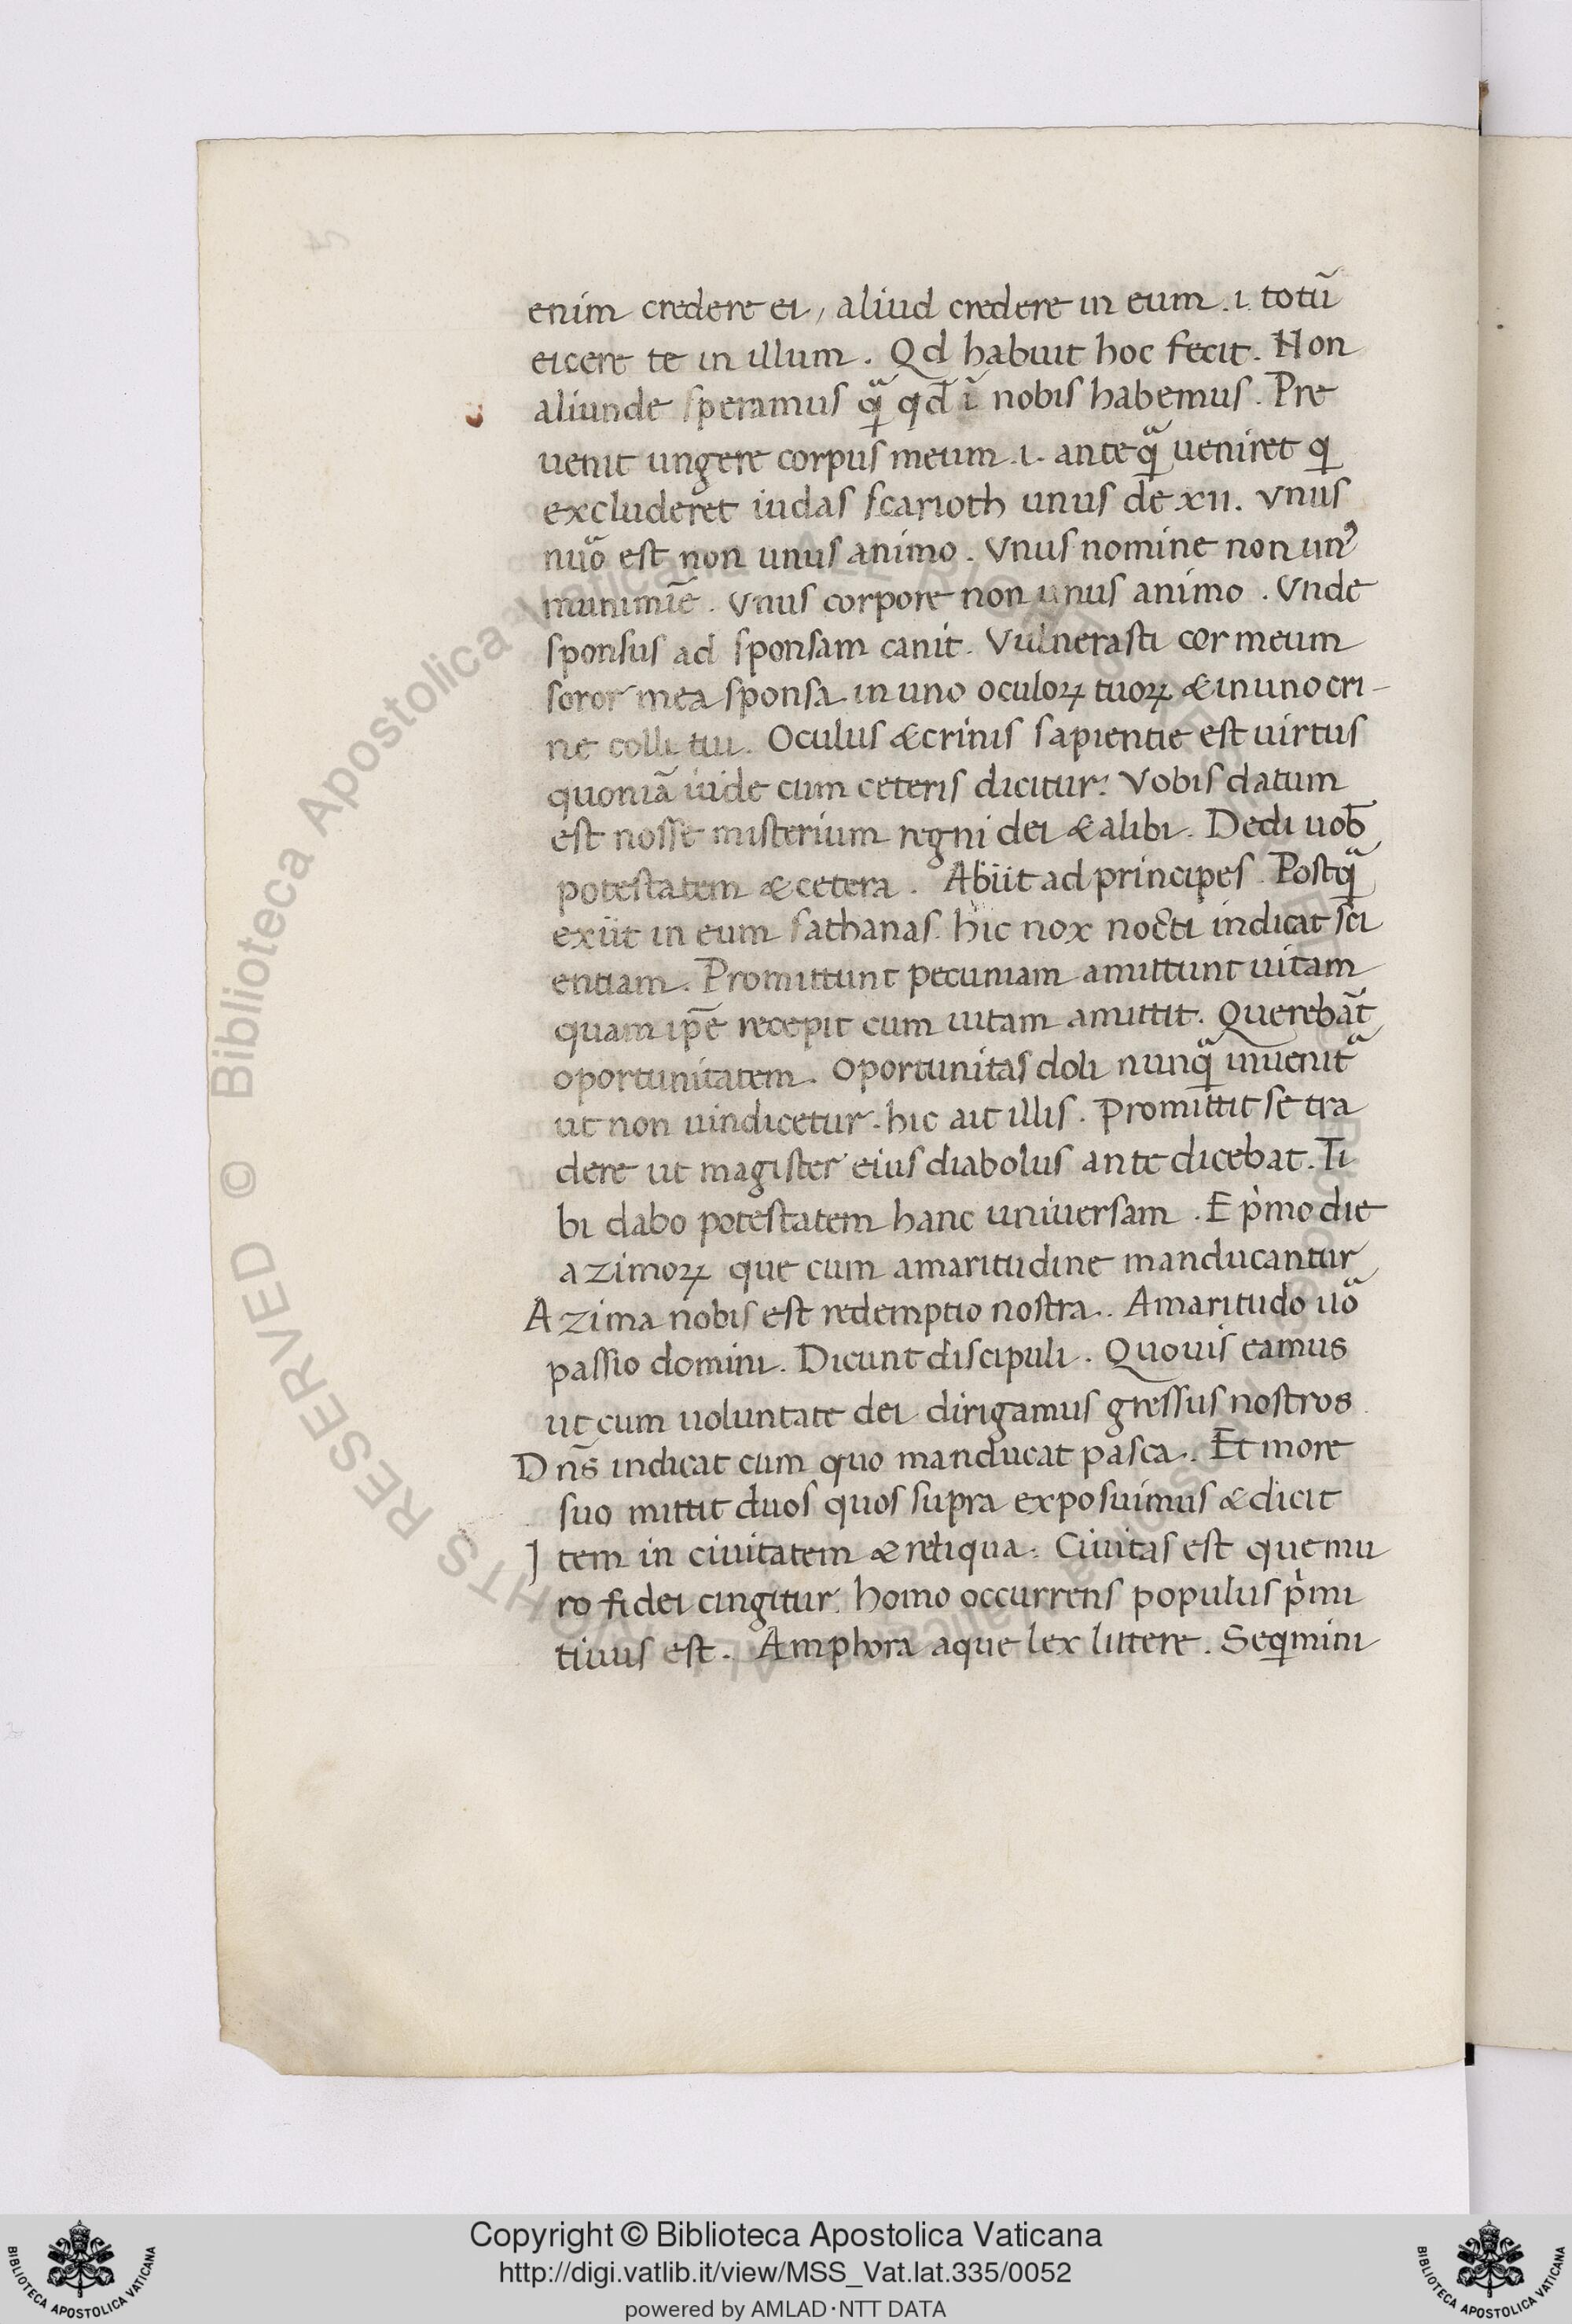 enim credere ei, aliud credere in eum .i. totū
eicere te in illum. Qd habuit hoc fecit. Non
aliunde speramus qͣ qd̄ ī nobis habemus. Pre
uenit ungere corpus meum .i. anteqͣ ueniret q
excluderet iudas scarioth unus de xii. Vnus
nuͣo est non unus animo. Vnus nomine non un᾽
munimīe. Vnus corpore non unus animo. Vnde
sponsus ad sponsam canit. Vulnerasti cor meum
soror mea sponsa in uno oculoꝝ tuoꝝ & in uno cri-
ne colli tui. Oculus & crinis sapientie est uirtus
quoniā iude cum ceteris dicitur: Vobis datum
est nosse misterium regni dei & alibi. Dedi uob̄
potestatem & cetera. Abiit ad principes. Postqͣ
exiit in eum sathanas. hic nox nocti indicat sci
entiam. Promittunt pecuniam amittunt uitam
quam ip̄e recepit cum uitam amittit. Querebāt
oportunitatem. Oportunitas doli nunqͣ inuenitͣ
ut non uindicetur. hic ait illis. Promittit se tra
dere ut magister eius diabolus ante dicebat. Ti
bi dabo potestatem hanc uniuersam. E pͥmo die
azimoꝝ que cum amaritudine manducantur
Azima nobis est redemptio nostra. Amaritudo uͣo
passio domini. Dicunt discipuli. Quouis eamus
ut cum uoluntate dei dirigamus gressus nostros
Dn̄s indicat cum quo manducat pasca. Et more
suo mittit duos quos supra exposuimus & dicit
Item in ciuitatem & reliqua. Ciuitas est que mu
ro fidei cingitur. homo occurrens populus pͥmi
tiuus est. Amphora aque lex littere. Seqmini
Copyright © Biblioteca Apostolica Vaticana
http://digi.vatlib.it/view/MSS_Vat.lat.335/0052
powered by AMLAD·NTT DATA
BIBLIOTECA APOSTOLICA VATICANA
BIBLIOTECA APOSTOLICA VATICANA